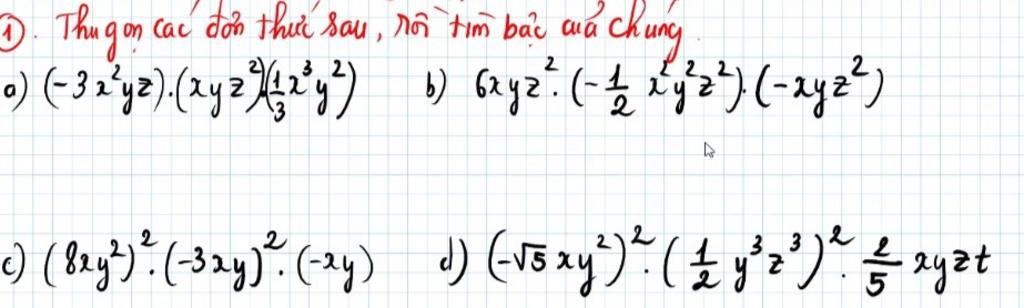 ①. Thu gọn các đơn thức sau, rồi tìm bậc của chúng
a) (-3x²yz).(xyz²)(1/3 x³y²) b) 6xyz².(-1/2 x²y²z²).(-xyz²)
c) (8xy²)².(-3xy)².(-xy) d) (-√5 xy²)².(1/2 y³z³)². 2/5 xyzt